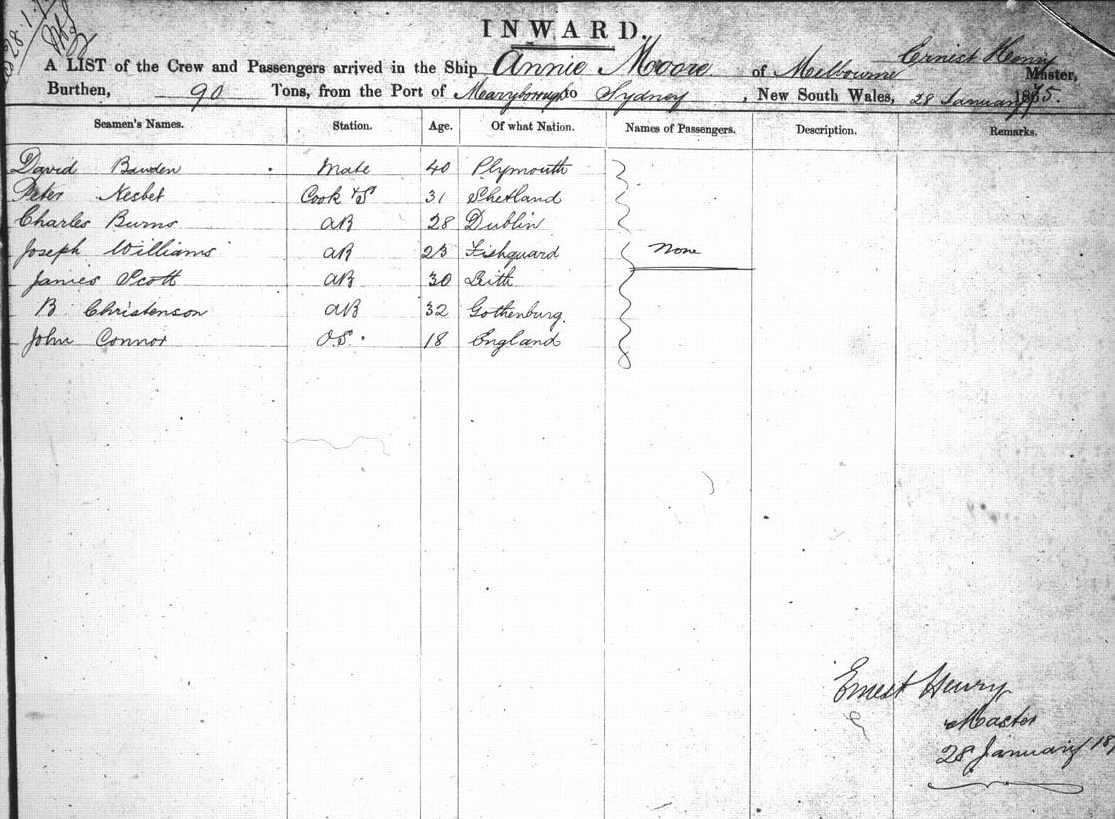 28.1.7
INWARD.
Ernest Henry
A LIST of the Crew and Passengers arrived in the Ship Annie Moore of Melbourne Master,
Burthen, 90 Tons, from the Port of Maryborough to Sydney, New South Wales, 28 January 1875.
Seamen's Names. Station. Age. Of what Nation. Names of Passengers. Description. Remarks.
David Bawden Mate 40 Plymouth
Peter Nesbet Cook & S 31 Shetland
Charles Burns AB 28 Dublin
Joseph Williams AB 23 Fishguard None
James Scott AB 30 Leith
B. Christenson AB 32 Gothenburg.
John Connor O.S. 18 England
Ernest Henry
Master
28 January 18